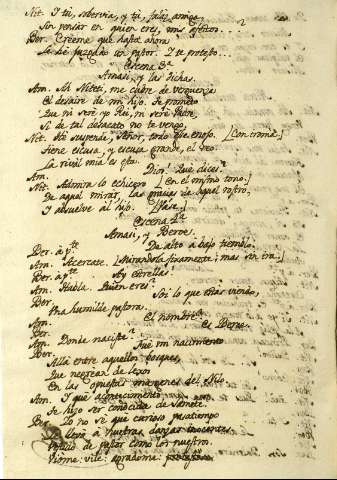 Nit. Y tú, sobervia, y tú, falsa amiga,
Sin pensar en quien eres, mis afectos...
Ber. Creeme que hasta ahora
Le hé juzgado un pastor. Y te protesto...
Escena 3ª
Amasi, y las dichas.
Am. Ah Niteti, me cubre de verguenza
El desaire de mi hijo. Te prometo
Que ni seré yo Rei, ni seré Padre
Si de tal desacato no te vengo.
Nit. Ah suspende, Señor, todo ese enojo. [Con ironía.]
Tiene escusa, y escusa grande, el reo.
La rival mia es esta.
Am. Dios! Qué dices?
Nit. Admira lo echicero [En el mismo tono.]
De aquel mirar, las gracias de aquel rostro,
Y absuelve al hijo. [Váse.]
Escena 4ª
Amasi, y Beroe.
Ber. à pte. De alto à bajo tiemblo.
Am. Acercate. [Mirandola fixamente; mas sin ira.]
Ber. à pte. Ay estrellas!
Am. Habla. Quien eres?
Ber. Soi lo que estás viendo,
Una humilde pastora.
Am. El nombre?
Ber. Es Beroe.
Am. Donde naciste?
Ber. Fue mi nacimiento
Allá entre aquellos bosques,
Que negrean de lexos
En las opuestas margenes del Nilo.
Am. Y qué acontecimiento
Te hizo ser conocida de Samete?
Ber. Yo no sé que curioso pasatiempo
Le llevó à nuestras danzas inocentes
Vestido de pastor como los nuestros.
Viome: vile: agradome: